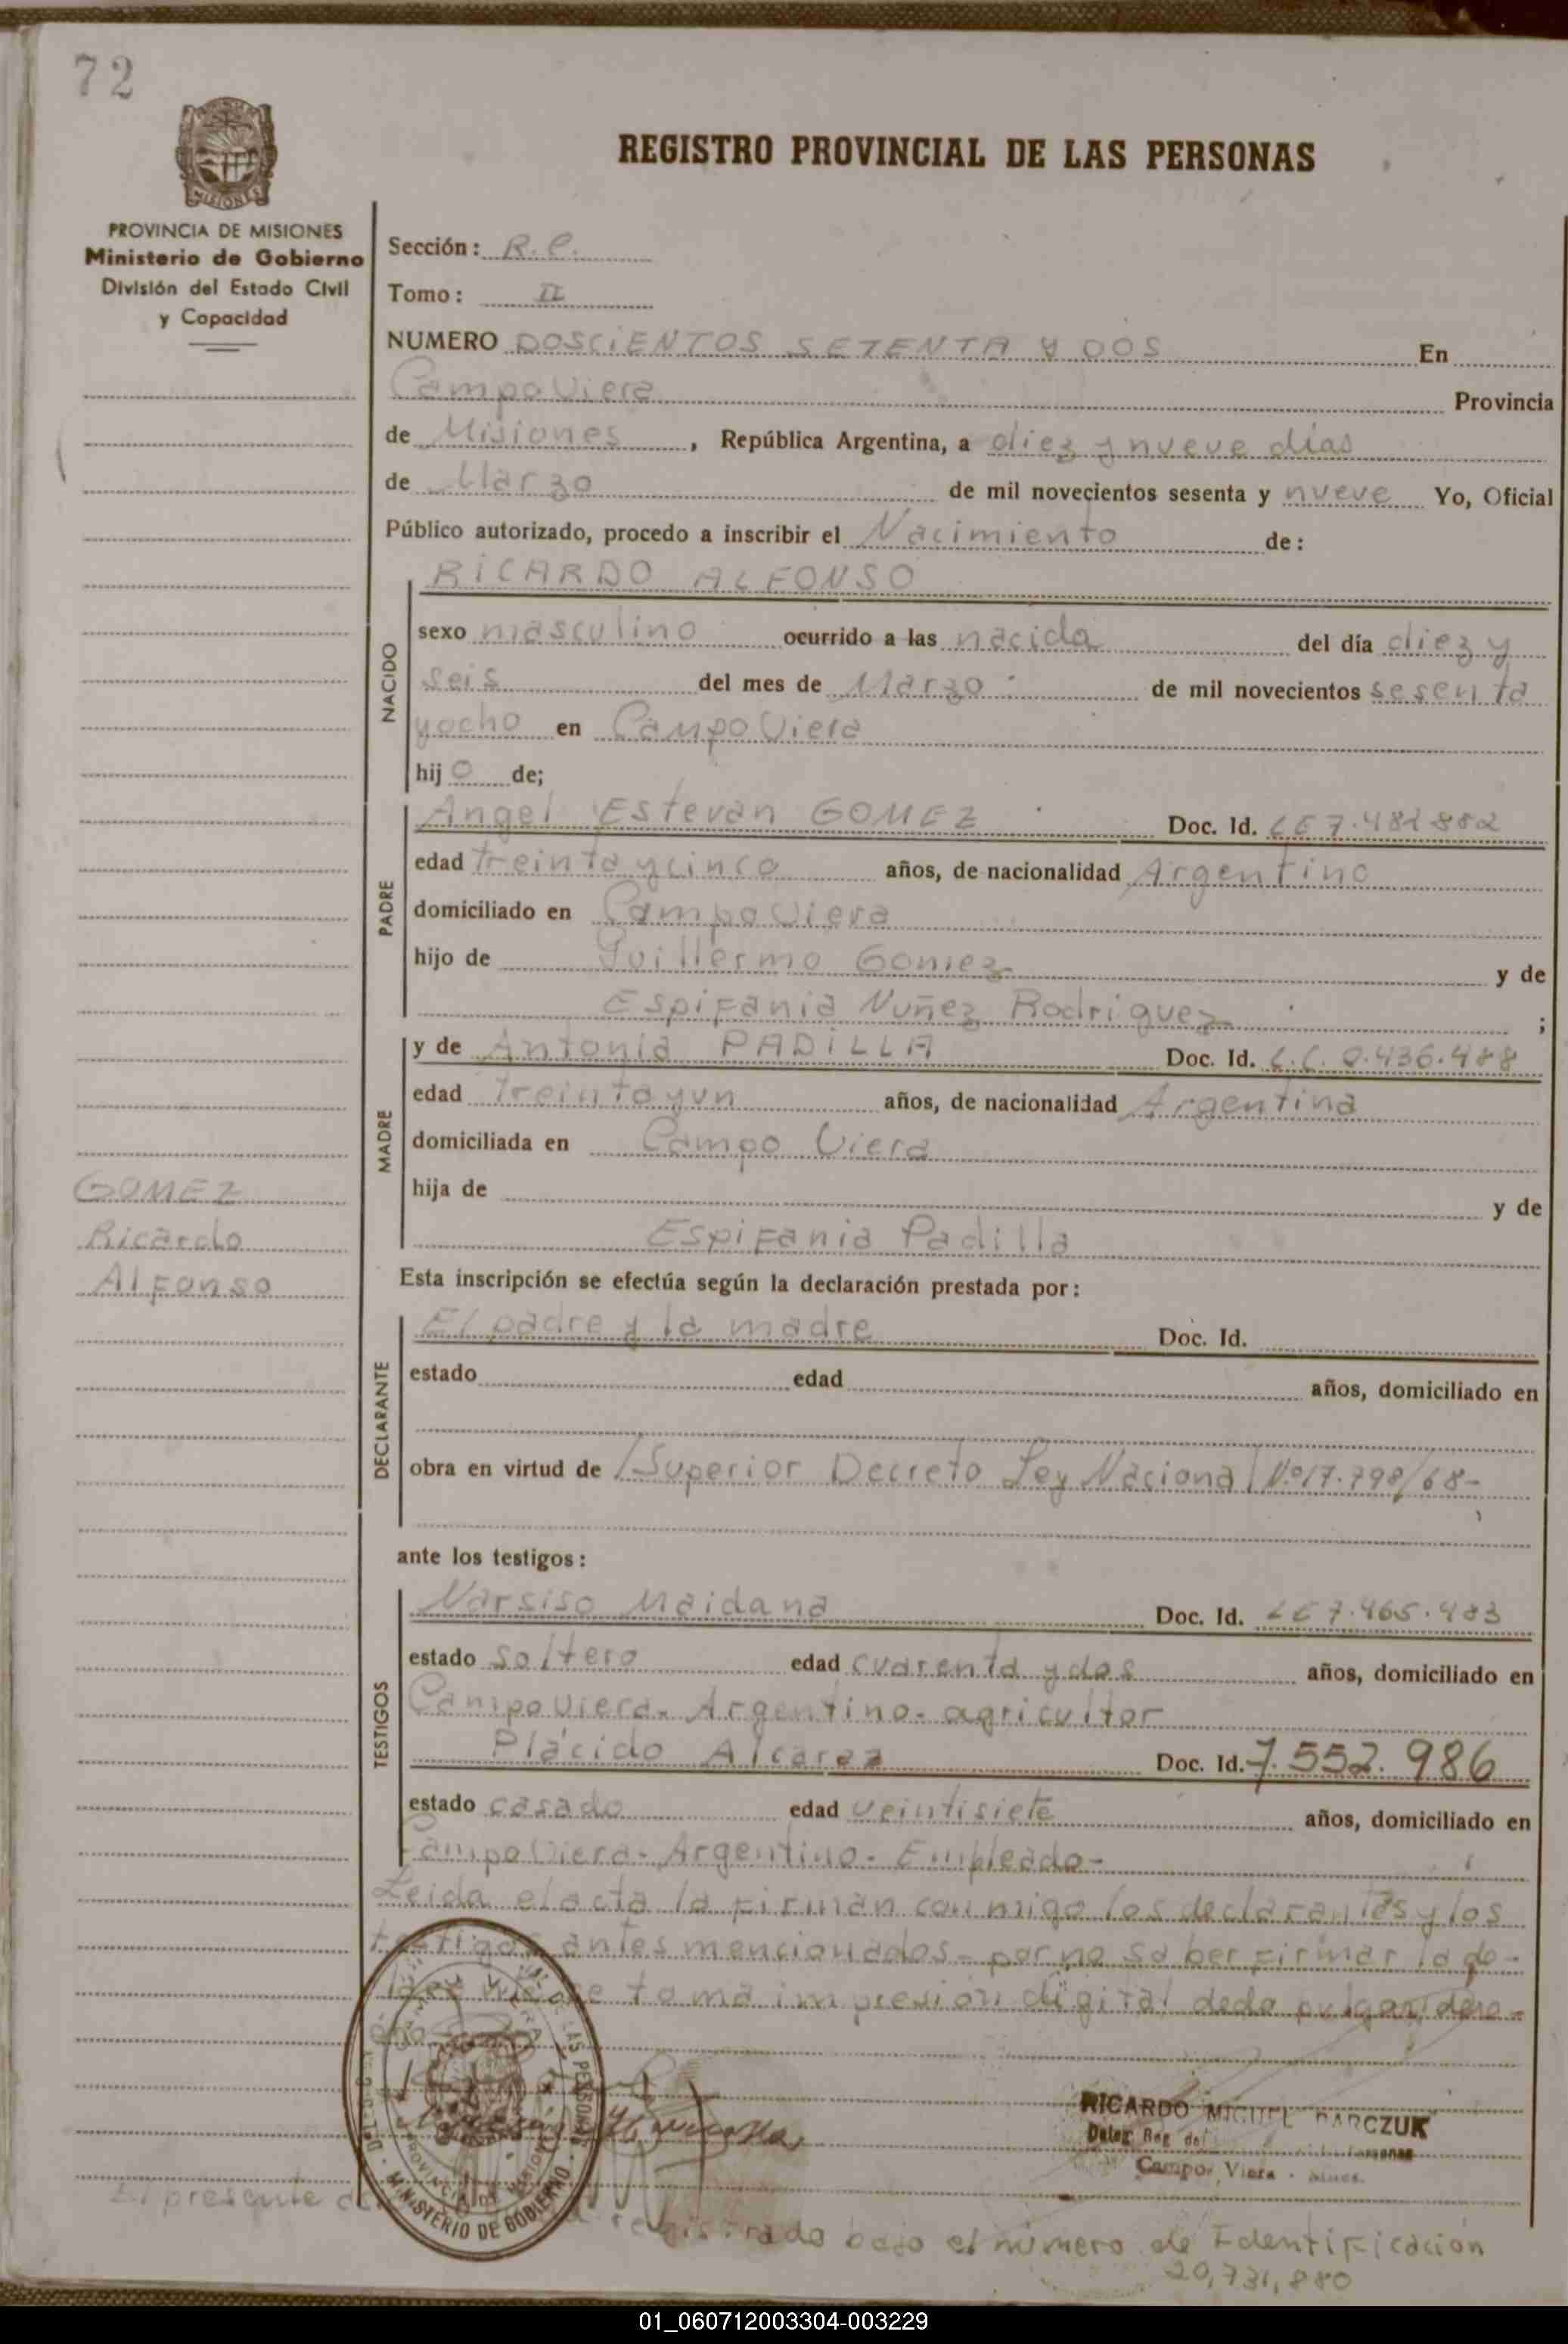 72
REGISTRO PROVINCIAL DE LAS PERSONAS
MISIONES
PROVINCIA DE MISIONES
Ministerio de Gobierno
División del Estado Civil
y Capacidad
Sección: R.P.
Tomo: II
NUMERO DOSCIENTOS SETENTA Y DOS En
Campo Viera Provincia
de Misiones, República Argentina, a diez y nueve días
de Marzo de mil novecientos sesenta y nueve Yo, Oficial
Público autorizado, procedo a inscribir el Nacimiento de:
RICARDO ALFONSO
NACIDO
sexo masculino ocurrido a las nacida del día diez y
seis del mes de Marzo de mil novecientos sesenta
y ocho en Campo Viera
hijo de;
PADRE
Angel Estevan GOMEZ Doc. Id. LE 7.482882
edad treinta y cinco años, de nacionalidad Argentino
domiciliado en Campo Viera
hijo de Guillermo Gomez y de
Espifania Nuñez Rodriguez ;
MADRE
y de Antonia PADILLA Doc. Id. L.C. 0.436.488
edad Treinta y un años, de nacionalidad Argentina
domiciliada en Campo Viera
hija de y de
Espifania Padilla
GOMEZ
Ricardo
Alfonso
Esta inscripción se efectúa según la declaración prestada por:
DECLARANTE
El padre y la madre Doc. Id.
estado edad años, domiciliado en
obra en virtud de /Superior Decreto Ley Nacional Nº17.798/68-
ante los testigos:
TESTIGOS
Narsiso Maidana Doc. Id. LE 7.465.483
estado soltero edad cuarenta y dos años, domiciliado en
Campo Viera. Argentino. agricultor
Plácido Alcaraz Doc. Id. 7.552.986
estado casado edad veintisiete años, domiciliado en
Campo Viera- Argentino- Empleado-
Leida el acta la firman con migo los declarantes y los
testigos antes mencionados- por no saber firmar la de-
toma impresión digital dedo pulgar dere-
LAS PERSONAS
MINISTERIO DE GOBIERNO
RICARDO MIGUEL DARCZUK
Campo Viera
El presente registrado bajo el número de Identificación
20,731,880
01_060712003304-003229